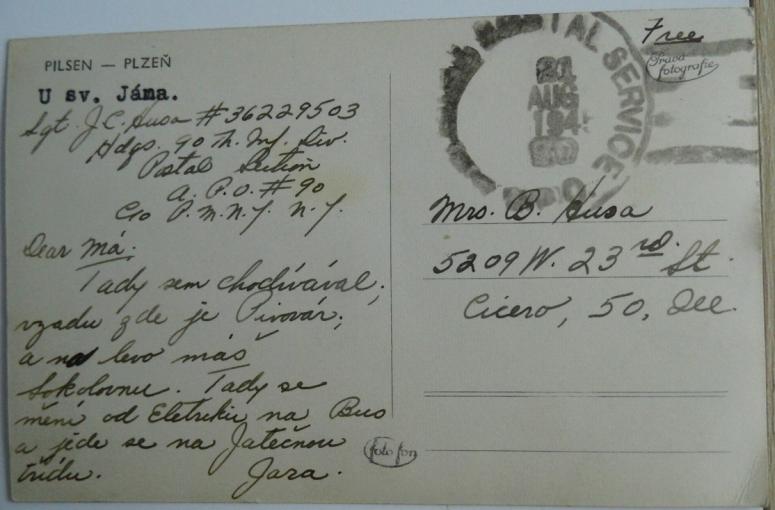 PILSEN — PLZEŇ
U sv. Jána.
Sgt. J.C. Husa # 36229503
Hdqs. 90 th. Inf. Div.
Postal Section
A. P. O. # 90
C/o P. M. N. Y. N. Y.
Dear Má.
Tady sem chodívával,
vzadu zde je Pivovár,
a na levo máš
Sokolovnu. Tady se
mění od Eletriku na Bus
a jéde se na Jatečnou
třídu. Jara.
foto fon
POSTAL SERVICE
21
AUG
194
Free
Pravá
fotografie
Mrs. B. Husa
5209 W. 23 rd. St.
Cicero, 50, Ill.